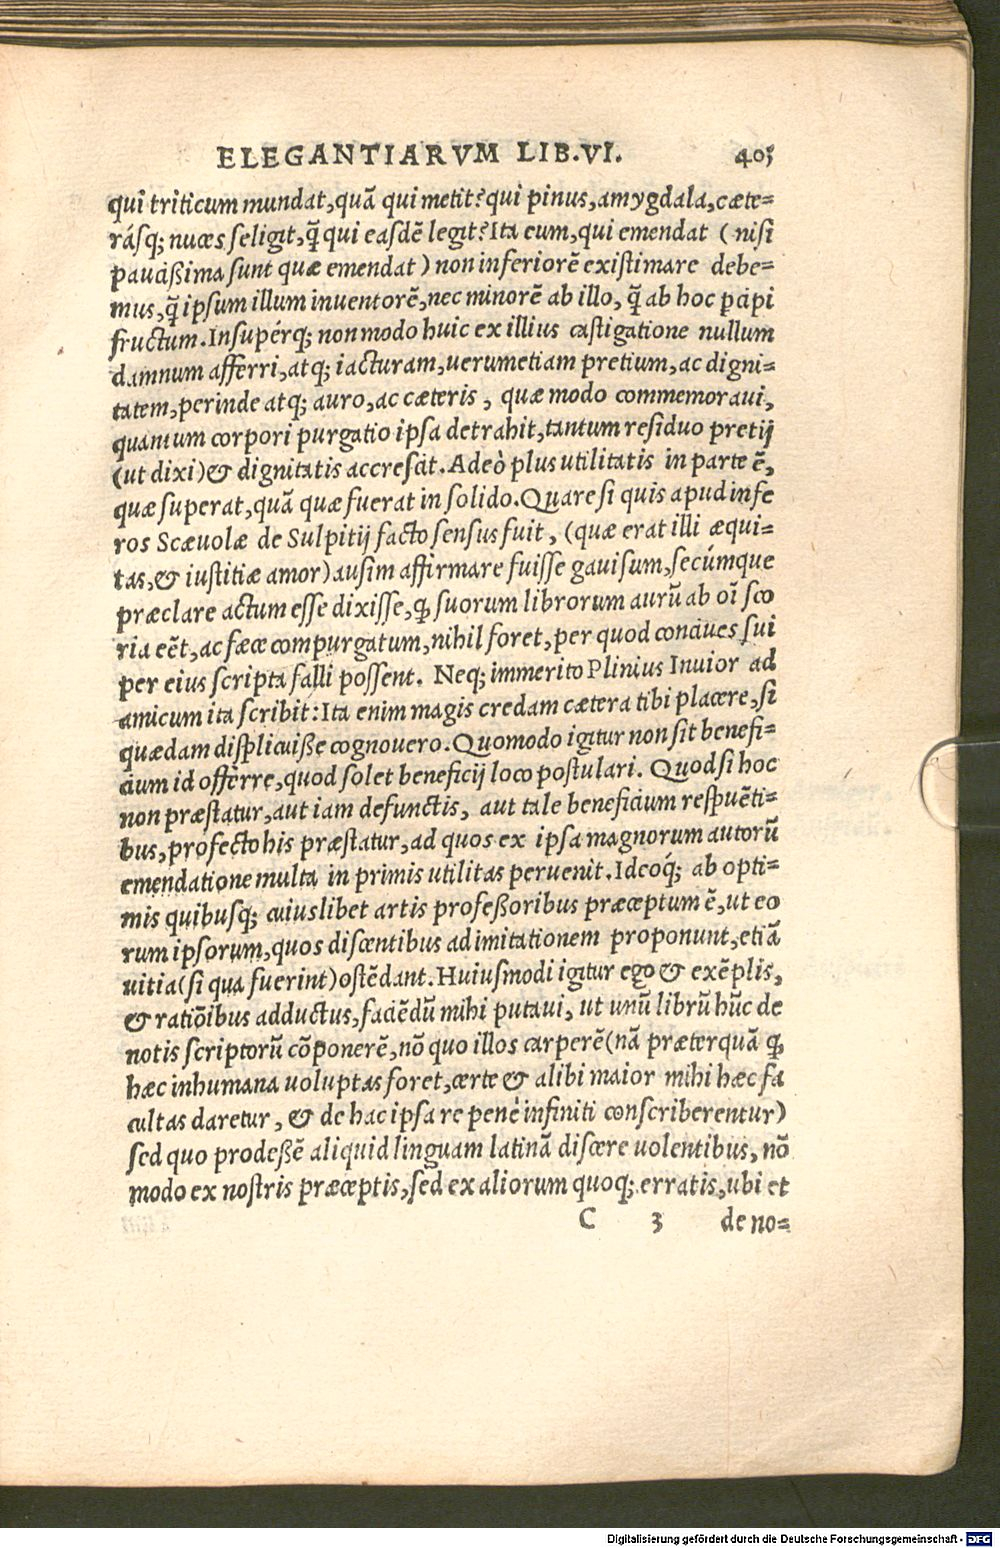 ELEGANTIARVM LIB.VI. 405
qui triticum mundat, quā qui metit? qui pinus, amygdala, cæte=
rásq; nuces seligit, q̃ qui easdē legit? Ita eum, qui emendat (nisi
paucißima sunt quæ emendat) non inferiorē existimare debe=
mus, q̃ ipsum illum inuentorē, nec minorē ab illo, q̃ ab hoc ꝑcipi
fructum. Insupérq; non modo huic ex illius castigatione nullum
damnum afferri, atq; iacturam, uerumetiam pretium, ac digni=
tatem, perinde atq; auro, ac cæteris, quæ modo commemoraui,
quantum corpori purgatio ipsa detrahit, tantum residuo pretij
(ut dixi) & dignitatis accrescit. Adeò plus utilitatis in parte ē,
quæ superat, quā quæ fuerat in solido. Quare si quis apud infe
ros Scæuolæ de Sulpitij facto sensus fuit, (quæ erat illi æqui=
tas, & iustitiæ amor) ausim affirmare fuisse gauisum, secúmque
præclare actum esse dixisse, ꝙ suorum librorum aurū ab oī sco
ria eēt, ac fæce compurgatum, nihil foret, per quod conciues sui
per eius scripta falli possent. Neq; immerito Plinius Iunior ad
amicum ita scribit: Ita enim magis credam cætera tibi placere, si
quædam displicuiße cognouero. Quomodo igitur non sit benefi=
cium id offerre, quod solet beneficij loco postulari. Quod si hoc
non præstatur, aut iam defunctis, aut tale beneficium respuēti=
bus, profecto his præstatur, ad quos ex ipsa magnorum autorū
emendatione multa in primis utilitas peruenit. Ideoq́; ab opti=
mis quibusq; cuiuslibet artis profeßoribus præceptum ē, ut eo
rum ipsorum, quos discentibus ad imitationem proponunt, etiā
uitia (si qua fuerint) ostēdant. Huiusmodi igitur ego & exēplis,
& ratiōibus adductus, faciēdū mihi putaui, ut unū librū hūc de
notis scriptorū cōponerē, nō quo illos carperē (nā præterquā ꝙ
hæc inhumana uoluptas foret, certe & alibi maior mihi hæc fa
cultas daretur, & de hac ipsa re penè infiniti conscriberentur)
sed quo prodeßē aliquid linguam latinā discere uolentibus, nō
modo ex nostris præceptis, sed ex aliorum quoq; erratis, ubi et
C 3 de no=
Digitalisierung gefördert durch die Deutsche Forschungsgemeinschaft - DFG